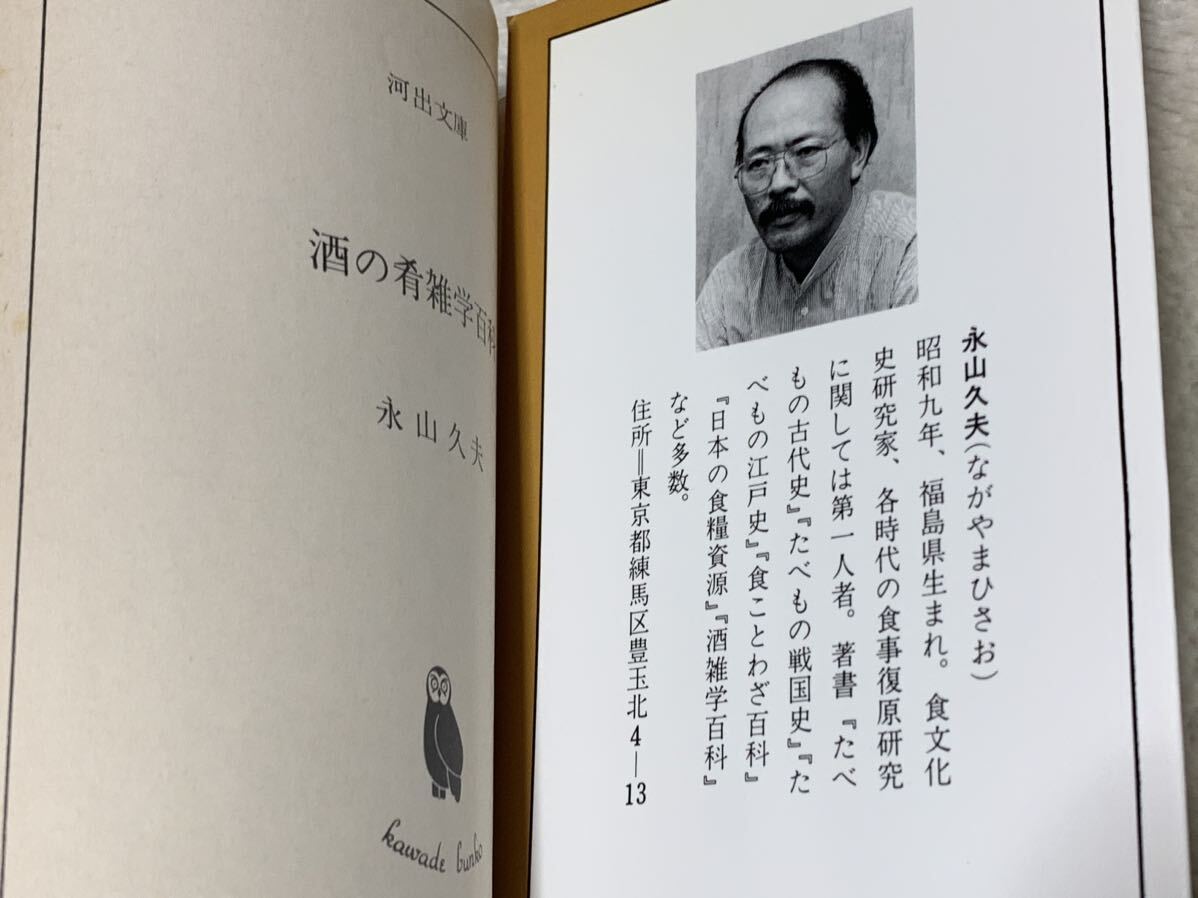 河出文庫
酒の肴雑学百科
永山久夫
kawade bunko
永山久夫(ながやまひさお)
昭和九年、福島県生まれ。食文化
史研究家、各時代の食事復原研究
に関しては第一人者。著書『たべ
もの古代史』『たべもの戦国史』『た
べもの江戸史』『食ことわざ百科』
『日本の食糧資源』『酒雑学百科』
など多数。
住所＝東京都練馬区豊玉北4—13